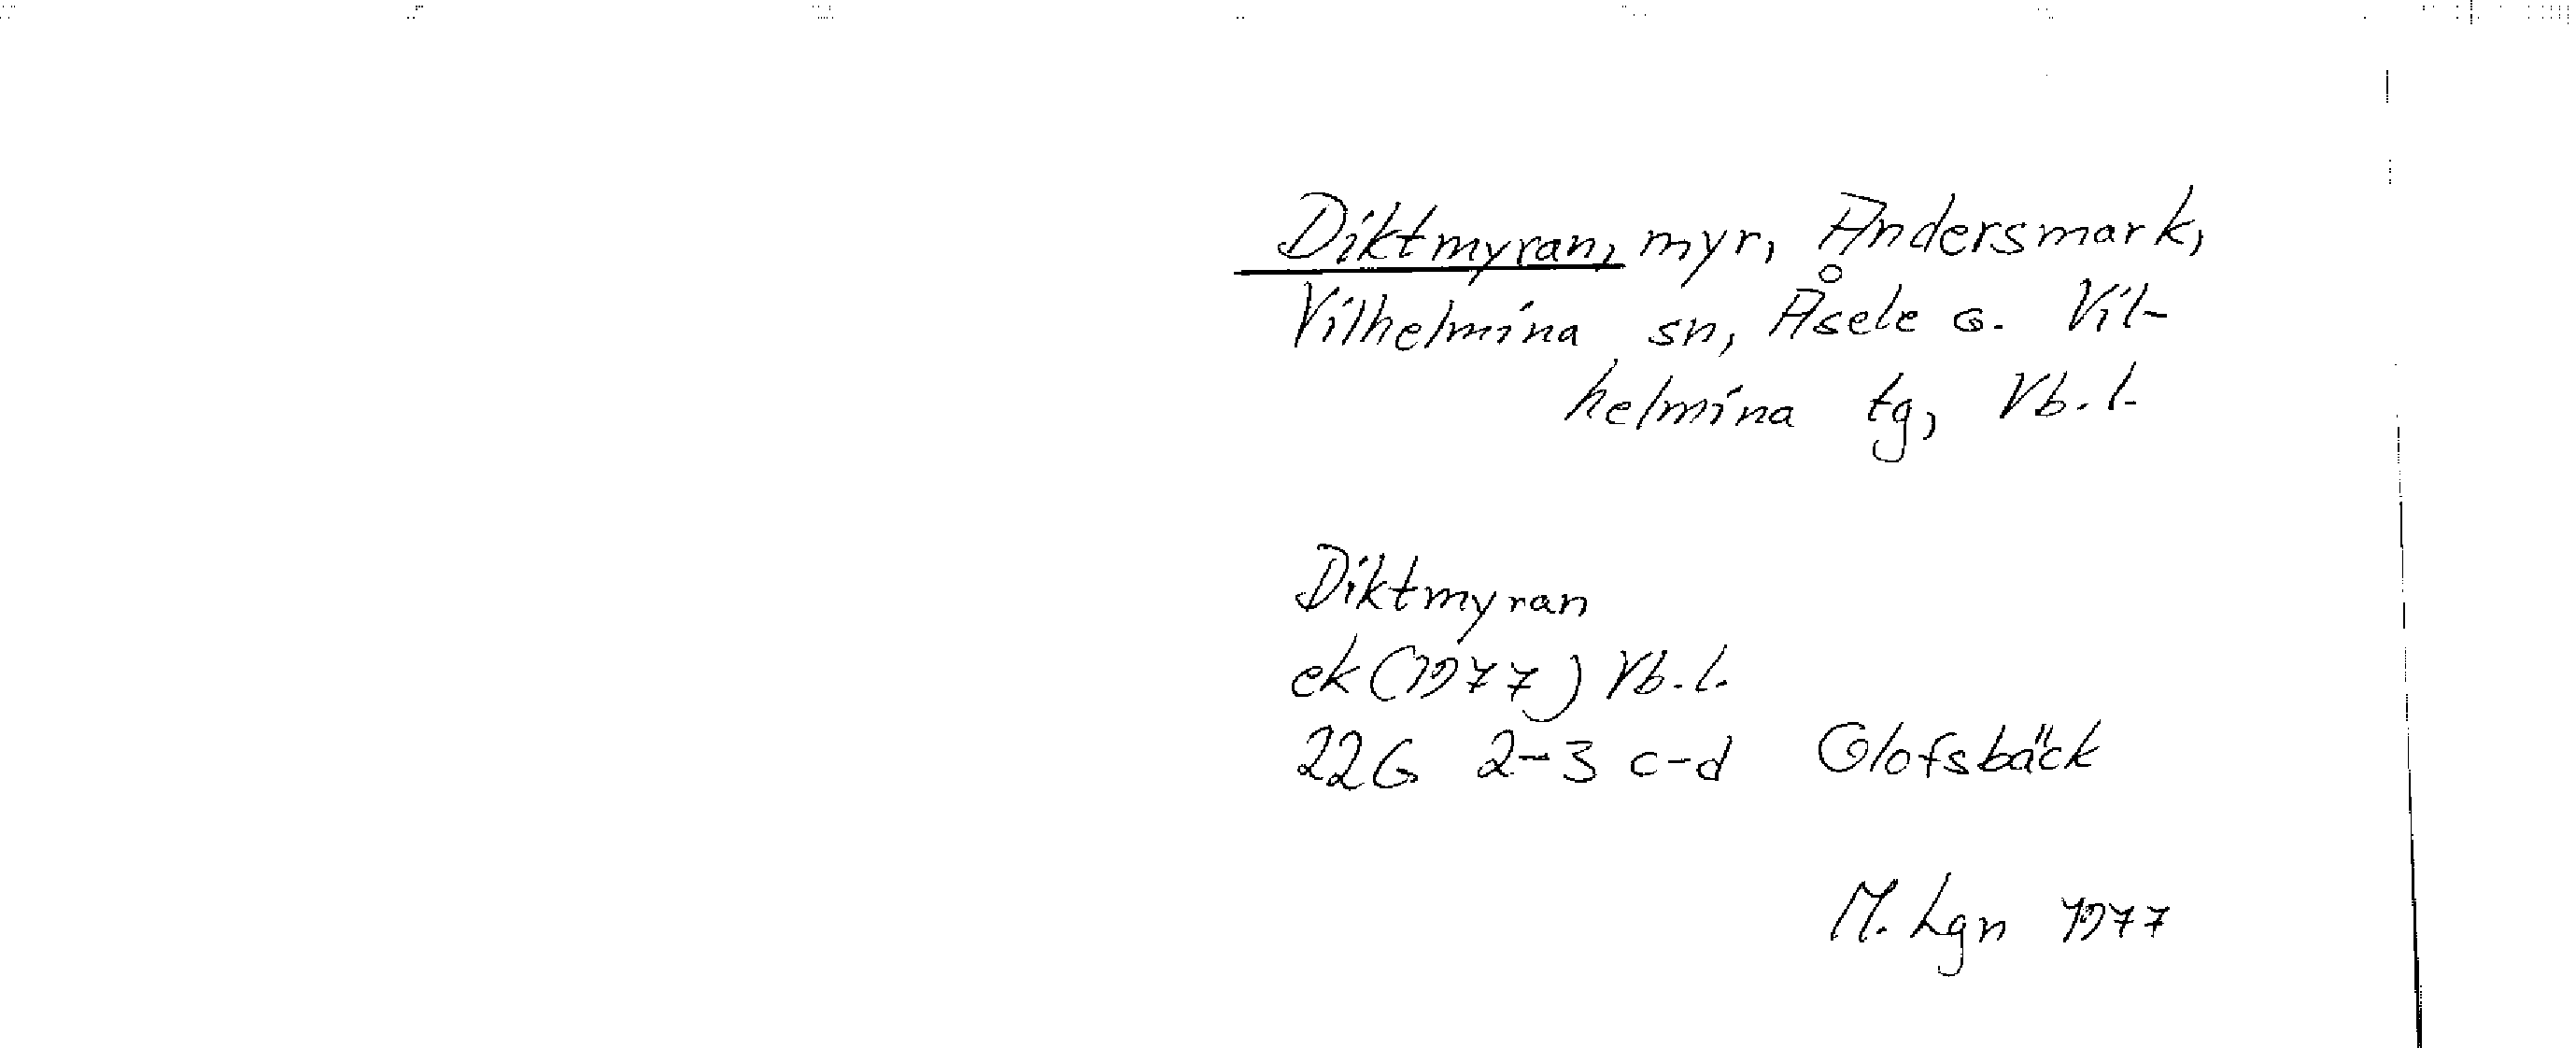 Diktmyran, myr, Andersmark,
Vilhelmina sn, Åsele o. Vil-
helmina tg, Vb. l.
Diktmyran
ek (1977) Vb. l.
22G 2-3 c-d Olofsbäck
M. Lgn 1977